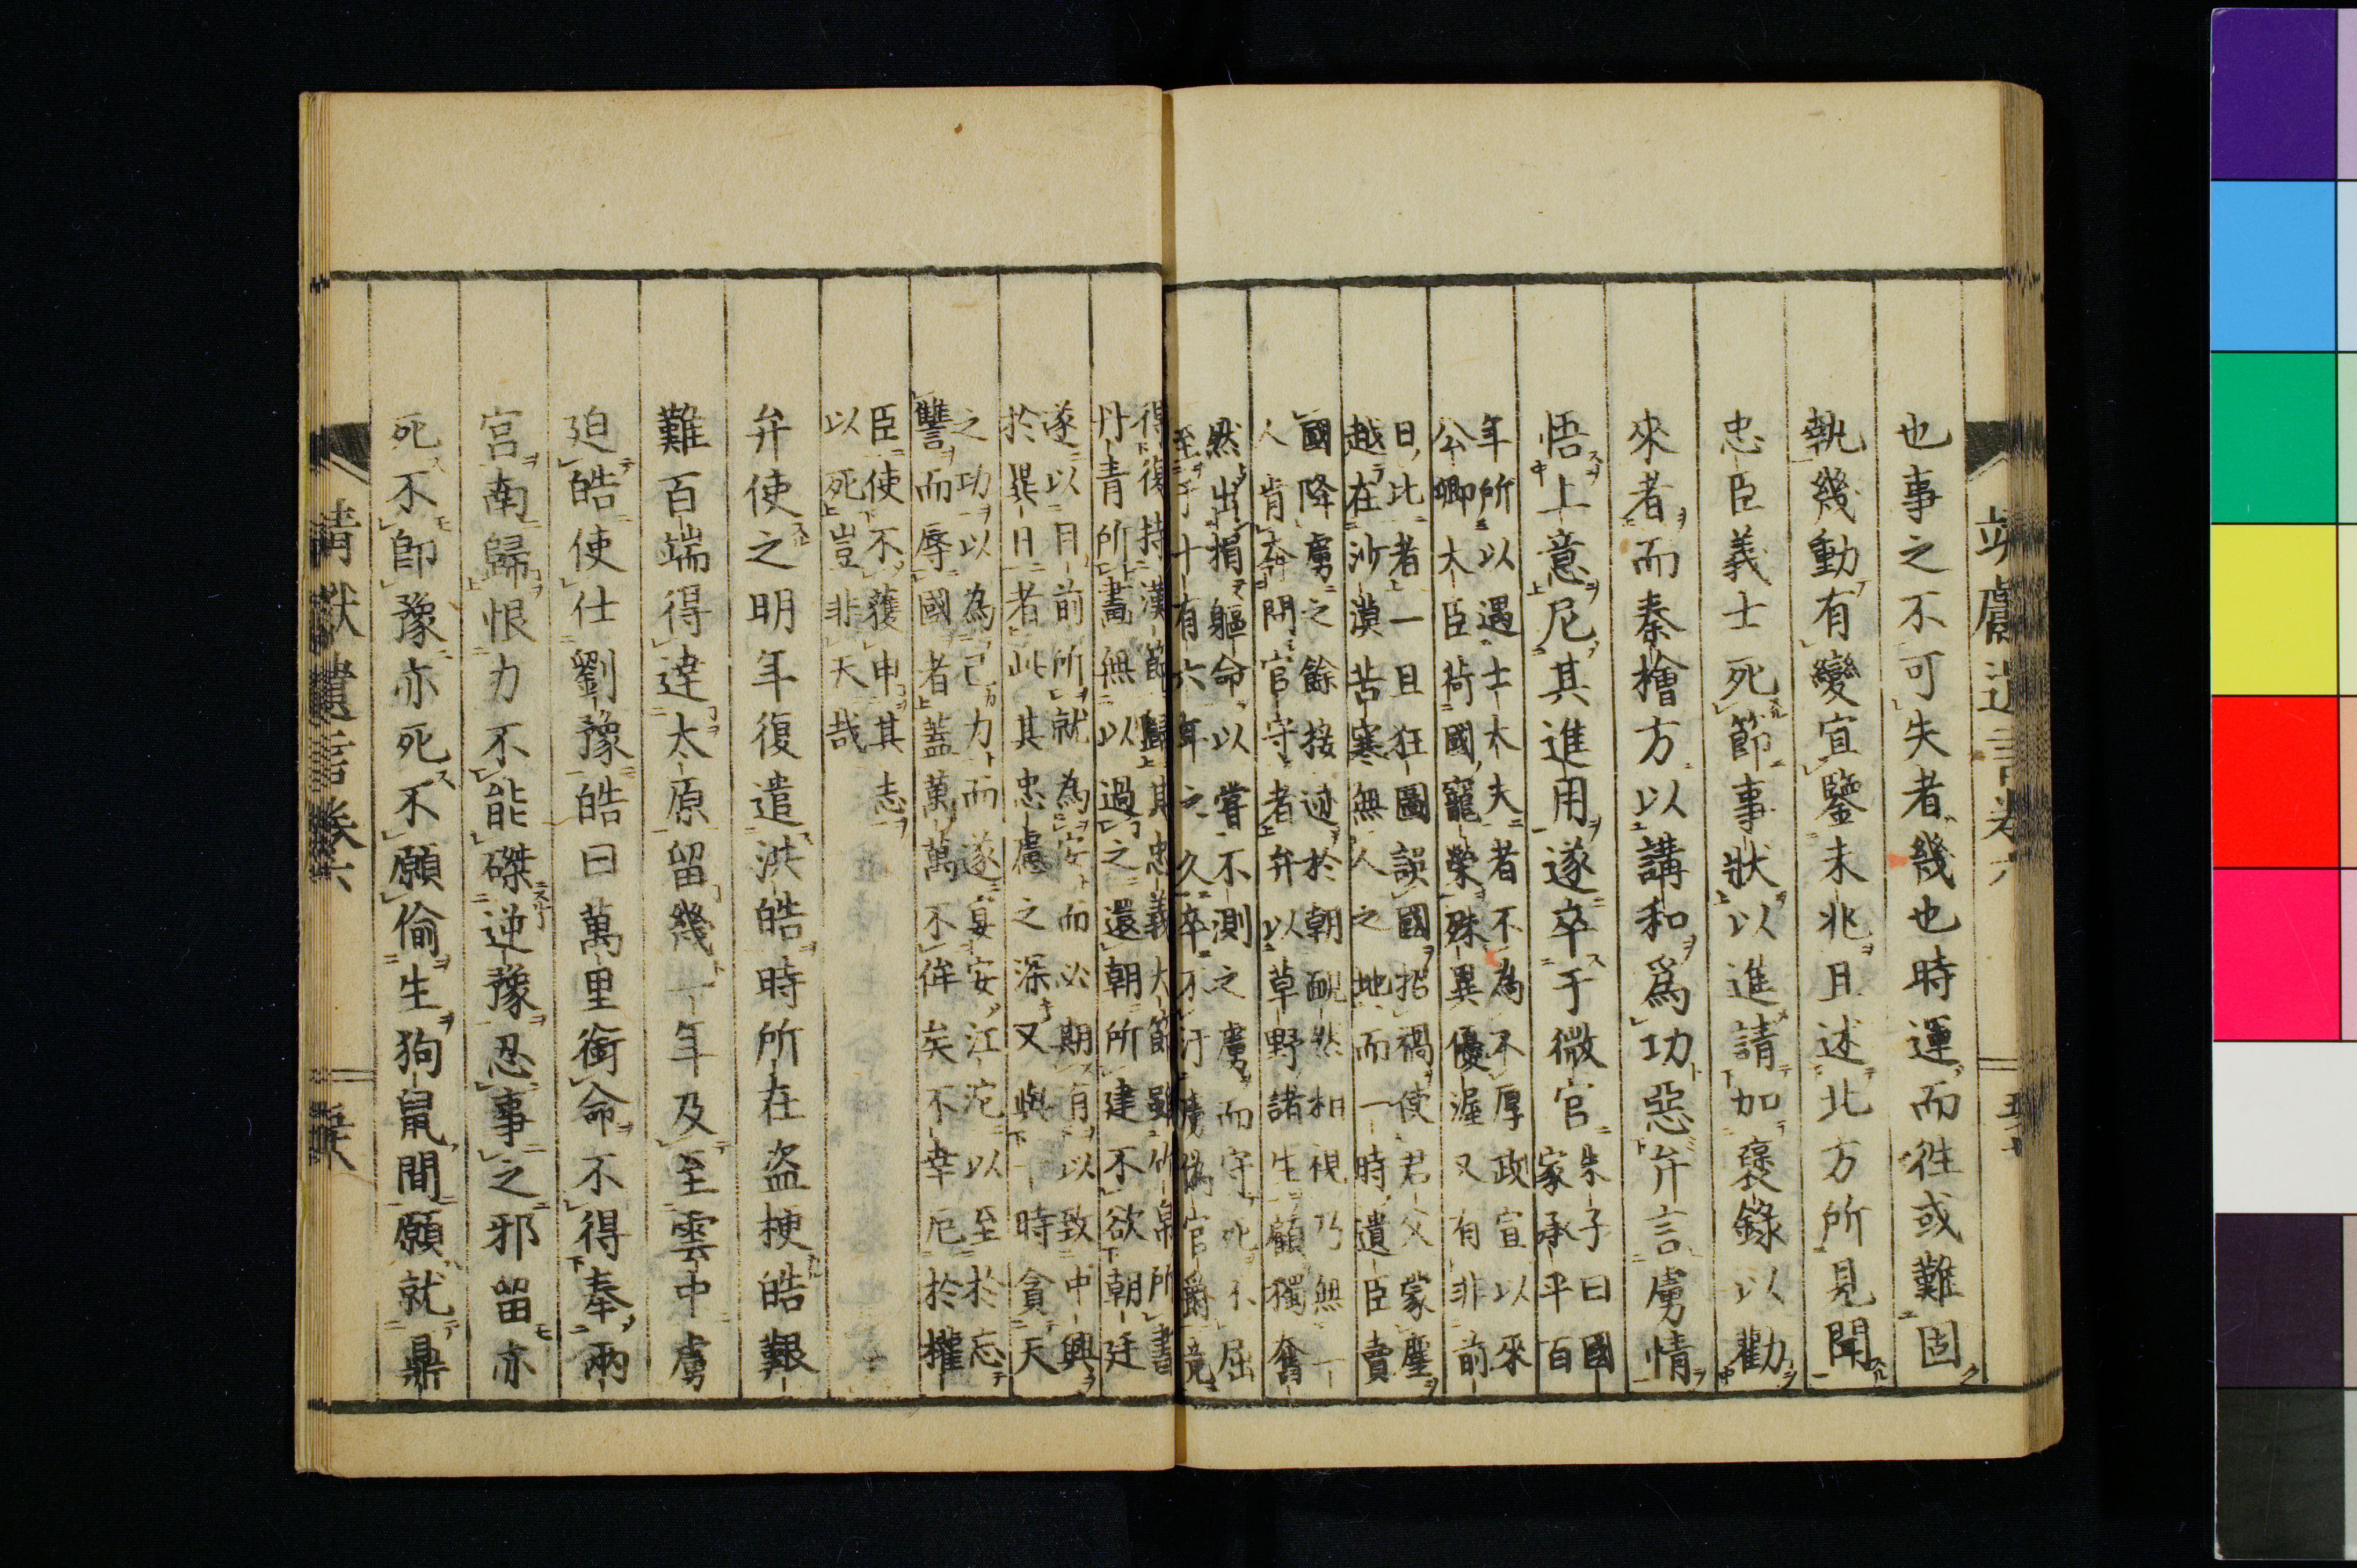 靖獻遺言卷六
也事之不可失者幾也時運而徃或難固
執幾動有變宜鑒未兆且述北方所見聞
忠臣義士死節事狀以進請加褒錄以勸
來者而秦檜方以講和爲功惡弁言虜情
悟上意尼其進用遂卒于微官
朱子曰國
家承平百
年所以遇士大夫者不為不厚政宣以來
公卿大臣荷國寵榮殊異優渥又有非前
日比者一旦狂圖誤國招禍使君父蒙塵
越在沙漠苦寒無人之地而一時遺臣賣
國降虜之餘接迹於朝靦然相視乃無一
人肯奔問官守者弁以草野諸生顧獨奮
然出捐軀命以嘗不測之虜而守死不屈
至于十有六年之久卒不汙虜偽官爵竟
得復持漢節歸其忠義大節雖竹帛所書
丹青所畫無以過之還朝所建不欲朝廷
遂以目前所就為安而必期有以致中興
於異日者此其忠慮之深又與一時貪天
之功以為己力而遂宴安江沱以至於忘
讐而辱國者蓋萬萬不侔矣不幸厄於權
臣使不獲申其志
以死豈非天哉
弁使之明年復遣洪皓時所在盗梗皓艱
難百端得達太原留幾一年及至雲中虜
迫皓使仕劉豫皓曰萬里銜命不得奉兩
宮南歸恨力不能磔逆豫忍事之邪留亦
死不卽豫亦死不願偷生狗鼠間願就鼎
靖獻遺言卷六